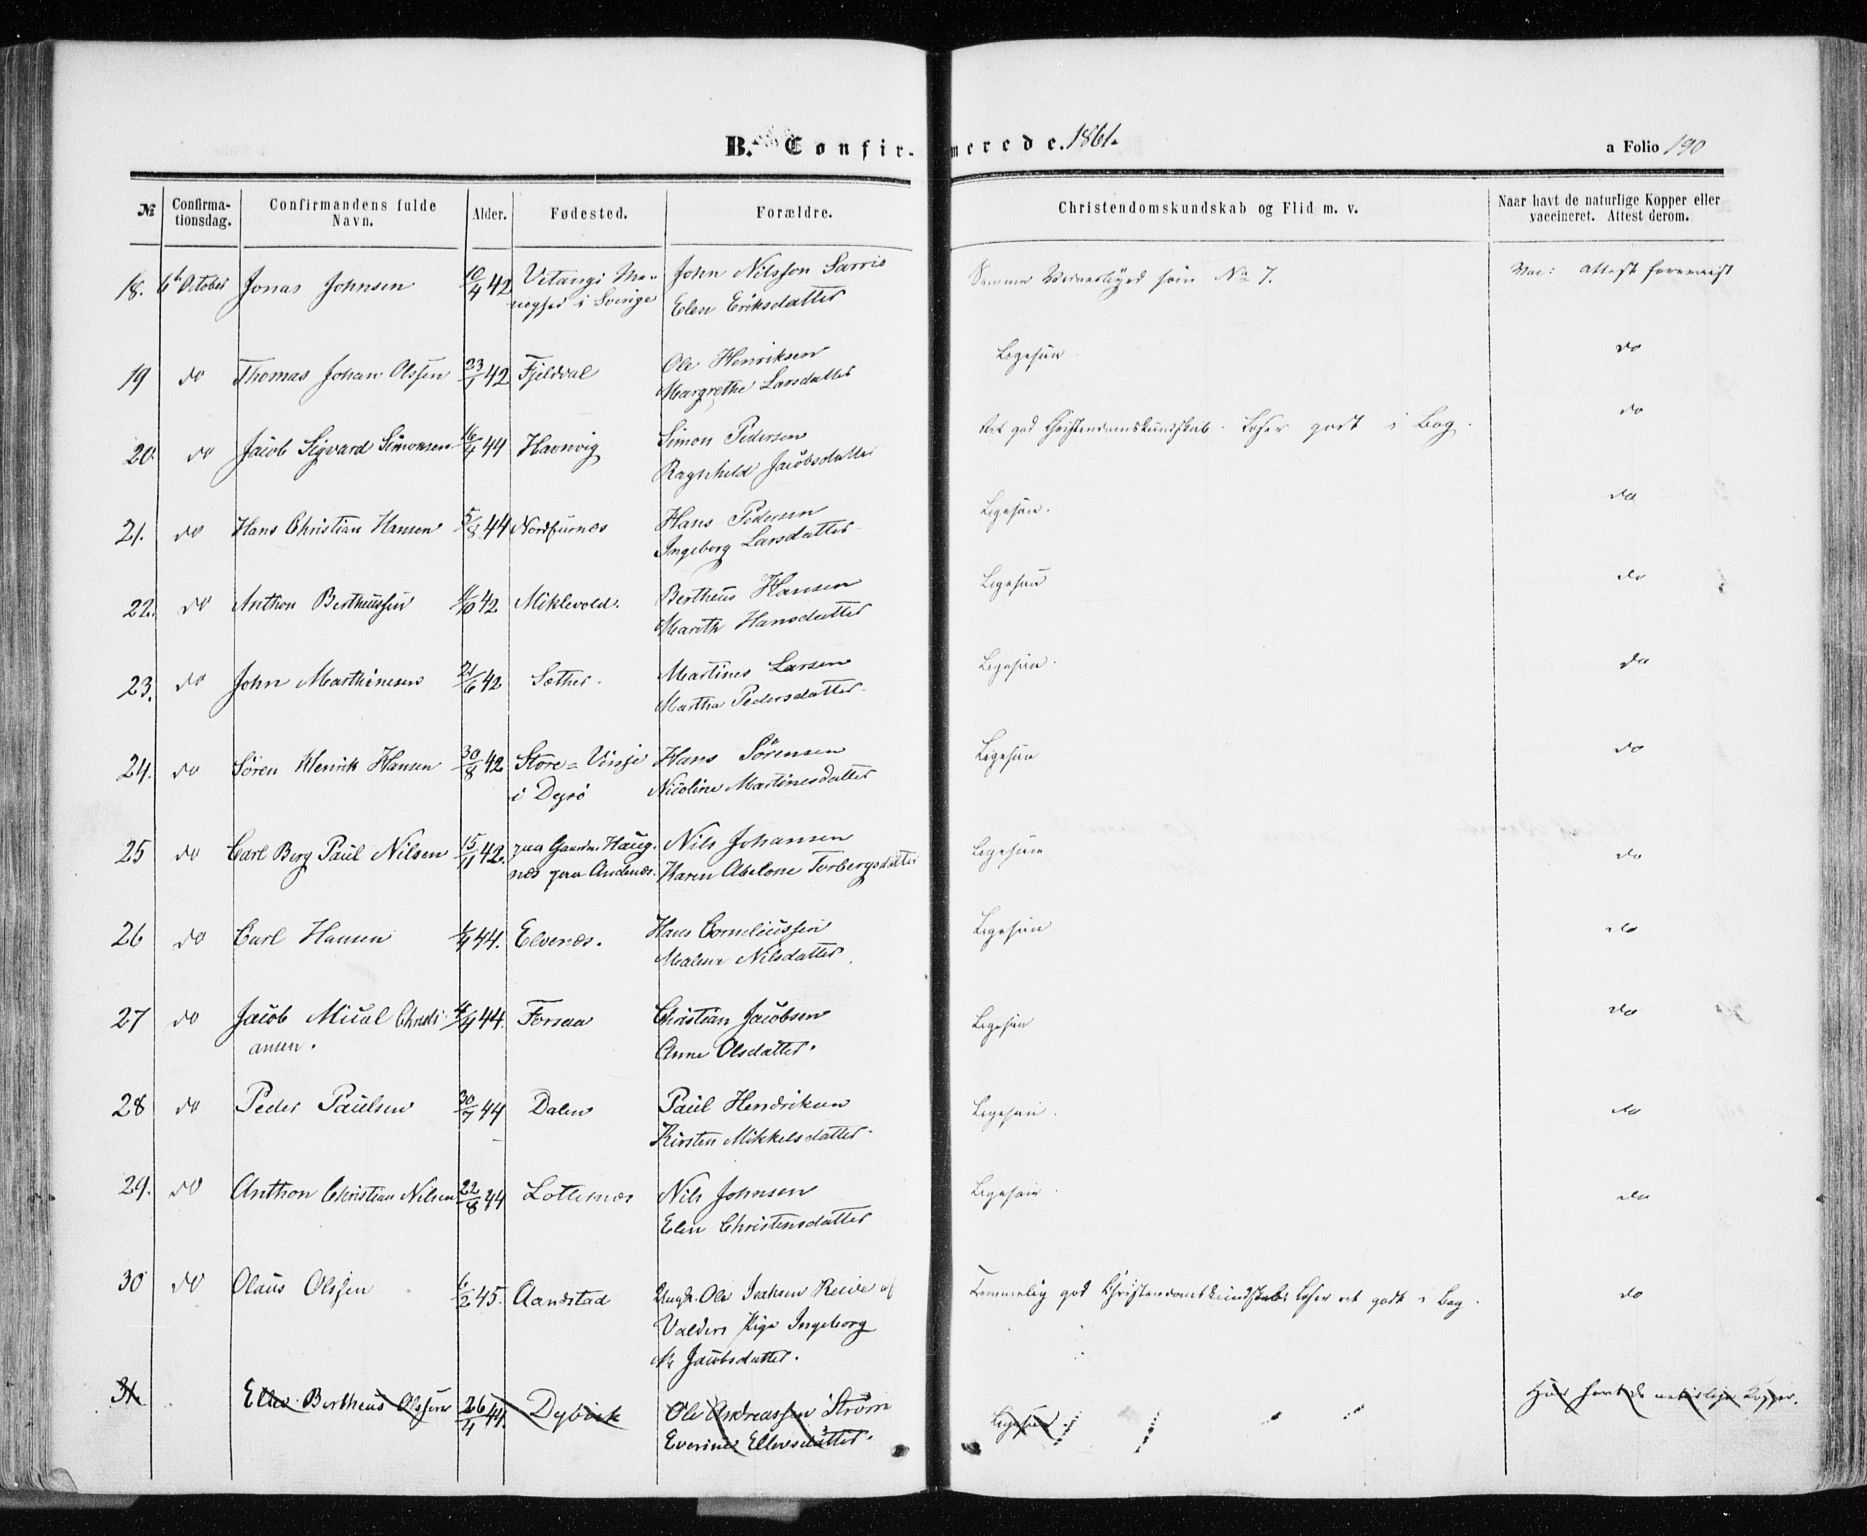 B. Confirmerede. 1861.
a Folio 190
№ Confirmationsdag. Confirmandens fulde Navn. Alder. Fødested. Forældre. Christendomskundskab og Flid m. v. Naar havt de naturlige Kopper eller vaccineret. Attest derom.
18. 6te October Jonas Johnsen 10/4 42 Vitangi Me- John Nilsson Sarris Samme Vidnesbyrd som No 7. Vac: Attest foreviist
nighed i Sverige Elen Eriksdatter
19 do Thomas Johan Olssen 23/1 42 Fjeldval Ole Henriksen Ligesaa do
Margrethe Larsdatter
20. do Jacob Sigvard Simonsen 16/4 44 Havnvig Simon Pedersen god Christendomskundskab. Læser godt i Bog. do
Ragnhild Jacobsdatter
21. do Hans Christian Hansen 5/8 44 Nordfurnæs Hans Pedersen Ligesaa. do
Ingeborg Larsdatter
22. do Anthon Bertheussen 42 Miklevold. Bertheus Hansen Ligesaa do
Marith Hansdatter
23. do John Marthinesen 21/6 42 Sæther. Martines Larsen Ligesaa. do
Martha Pedersdatter
24. do Søren Henrik Hansen 30/8 42 Store=Vinje Hans Sørensen Ligesaa do
i Dyrø Nicoline Martinesdatter
25 do Carl Berg Paul Nilsen 15/11 42. paa Gaarden Haug- Nils Johansen Ligesaa do
næs paa Andenæs. Karen Abelone Torbergsdatter
26 do Carl Hansen 44. Elvenæs. Hans Corneliussen Ligesaa do
Malene Nilsdatter.
27 do Jacob Mical Christi- 44. Forsaa Christian Jacobsen Ligesaa do
ansen. Anne Olsdatter.
28 do Peder Paulsen 30/7 44 Dalen Paul Hendriksen Ligesaa. do
Kirsten Mikkelsdatter.
29. do Anthon Christian Nilsen 22/8 44 Lottenæs Nils Johnsen Ligesaa. do
Elen Christensdatter
30 do Olaus Olssen 6/2 45. Aanstad Ungk. Ole Reise af Temmelig god Christendomskundskab. Læser ret godt i Bog. do
Valders Pige Ingeborg
M. Jacobsdatter.
31. Ellev Bertheus Olssen 26/4 44. Dybvik Ole Andreassen Strøm Ligesaa Har havt de naturlige Kopper.
Everine Ellevsdatter.